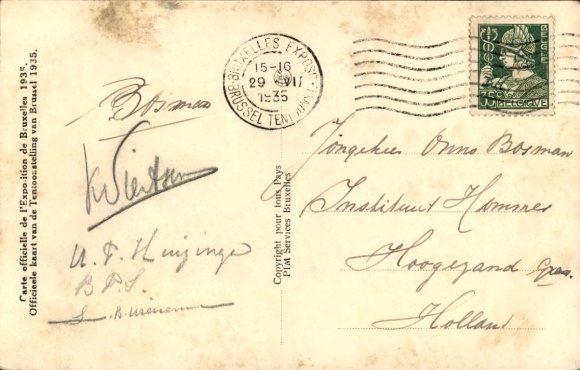 Carte officielle de l'Exposition de Bruxelles 1935.
Officieele kaart van de Tentoonstelling van Brussel 1935.
BRUXELLES EXPOSITION
15-16
29 VII
1935
BRUSSEL TENTOONST
35c
BELGIQUE
Bosman
U. F. Huizinga
B.F.S.
Copyright pour tous Pays
PIM Services Bruxelles
Jongeheer Onno Bosman
Instituut Hommes
Hoogezand Gron.
Holland